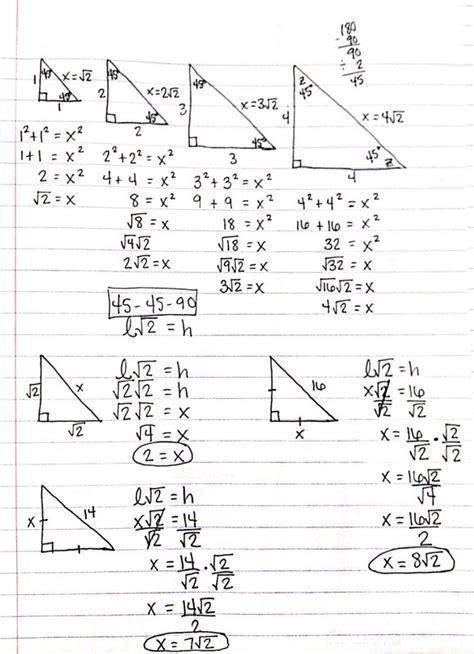 180
- 90
90
÷ 2
45
1 45° x=√2 45° 1
2 45° x=2√2 45° 2
3 45° x=3√2 45° 3
4 z 45° x=4√2 45° z 4
1²+1² = x²
1+1 = x²
2 = x²
√2 = x
2²+2² = x²
4+4 = x²
8 = x²
√8 = x
√4√2
2√2 = x
3²+3² = x²
9+9 = x²
18 = x²
√18 = x
√9√2 = x
3√2 = x
4²+4² = x²
16+16 = x²
32 = x²
√32 = x
√16√2 = x
4√2 = x
45-45-90
l√2 = h
√2 x √2
l√2 = h
√2√2 = h
√2√2 = x
√4 = x
2 = x
16 x
l√2 = h
x√2 = 16
√2 √2
x = 16 · √2
√2 √2
x = 16√2
√4
x = 16√2
2
x = 8√2
x 14
l√2 = h
x√2 = 14
√2 √2
x = 14 · √2
√2 √2
x = 14√2
2
x = 7√2